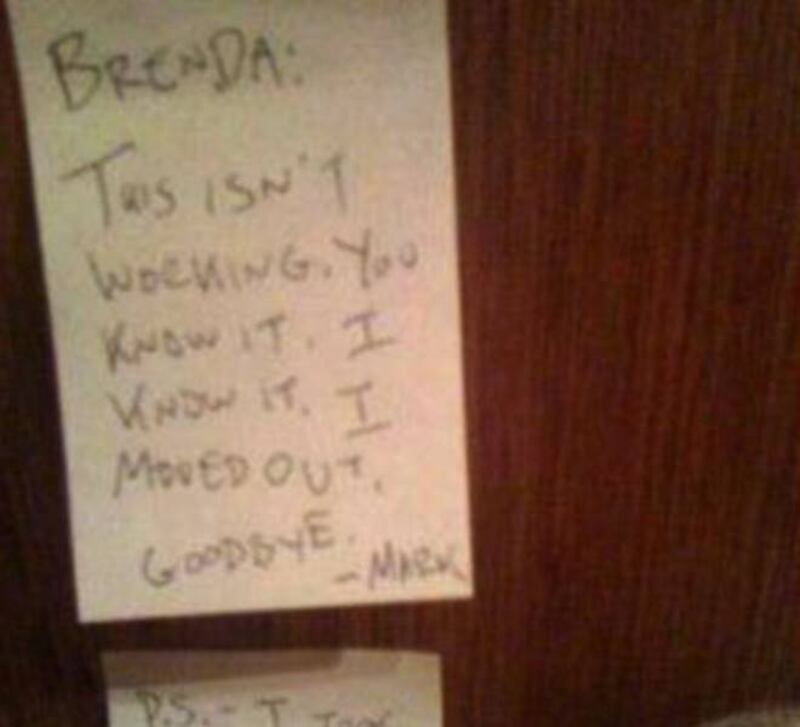 BRENDA:
THIS ISN'T
WORKING. YOU
KNOW IT. I
KNOW IT. I
MOVED OUT.
GOODBYE.
-MARK
P.S.- I TOOK